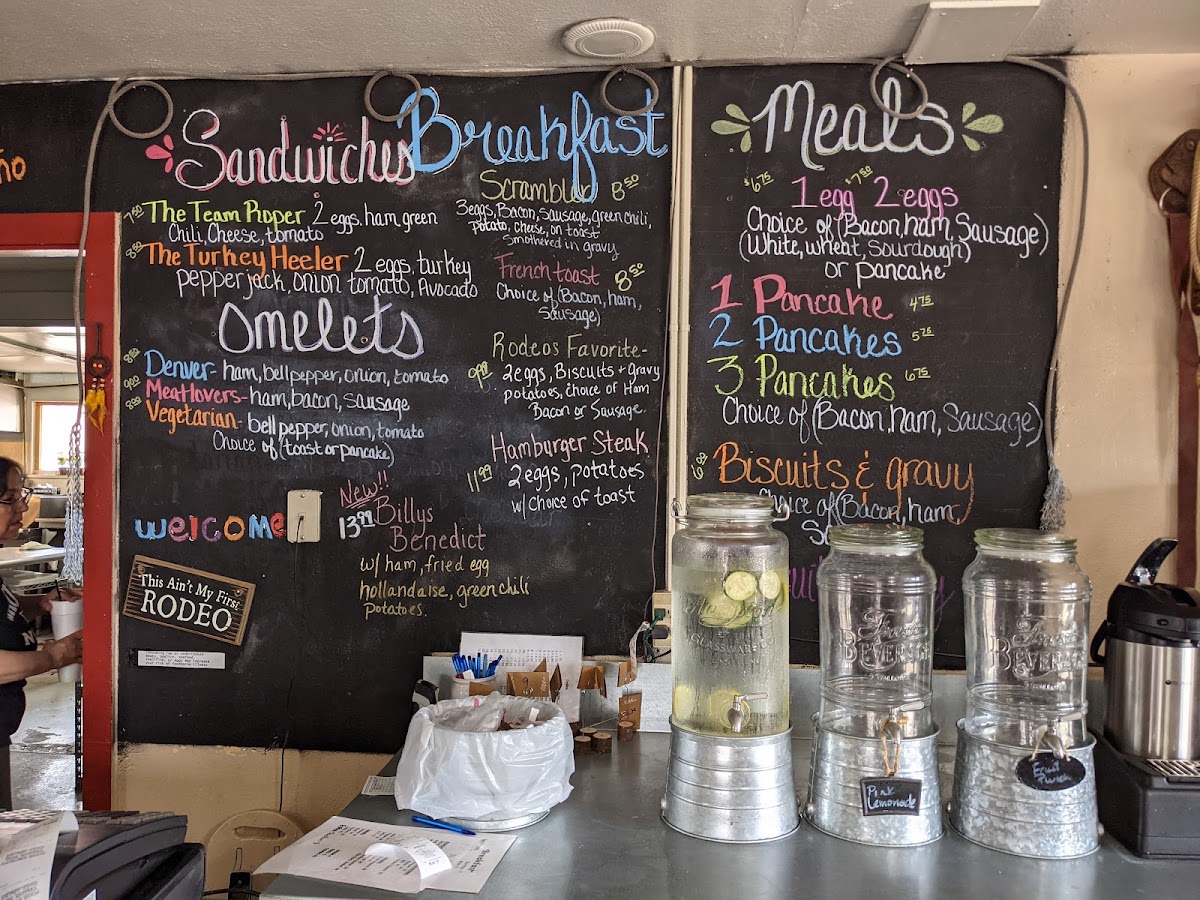 ño
Sandwiches
7.50 The Team Roper 2 eggs, ham, green
Chili, Cheese, tomato
8.50 The Turkey Heeler 2 eggs, turkey
pepper jack, onion tomato, Avocado
Omelets
8.50 Denver- ham, bell pepper, onion, tomato
9.00 Meatlovers- ham, bacon, sausage
8.00 Vegetarian- bell pepper, onion, tomato
Choice of (toast or pancake)
Breakfast
Scrambler 8.50
3eggs, Bacon, Sausage, green chili,
potato, cheese, on toast
Smothered in gravy
French toast 8.50
Choice of (Bacon, ham,
Sausage)
Rodeos Favorite-
9.99 2eggs, Biscuits + gravy
potatoes, choice of Ham
Bacon or Sausage.
Hamburger Steak
11.99 2eggs, potatoes
w/ choice of toast
New!!
13.99 Billys
Benedict
w/ ham, fried egg
hollandaise, green chili
potatoes.
welcome
This Ain't My First
RODEO
Meals
$6.75 $7.50
1 egg 2 eggs
Choice of (Bacon, ham, Sausage)
(White, wheat, sourdough)
or pancake
1 Pancake 4.75
2 Pancakes 5.75
3 Pancakes 6.75
Choice of (Bacon, ham, Sausage)
6.50 Biscuits & gravy
Choice of (Bacon, ham,
Fresh
BEVERAGE
Pink
Lemonade
BEVERAGE
Fruit
Punch
Breakfast